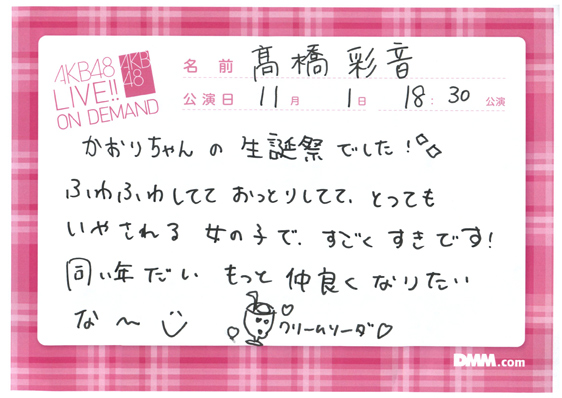 AKB48
LIVE!!
ON DEMAND
AKB
48
名前 髙橋 彩音
公演日 11月 1日 18:30 公演
かおりちゃん の 生誕祭 でした!
ふわふわしてて おっとりしてて、とっても
いやされる 女の子で、すごく すきです!
同い年だい もっと 仲良く なりたい
な〜
クリームソーダ
DMM.com